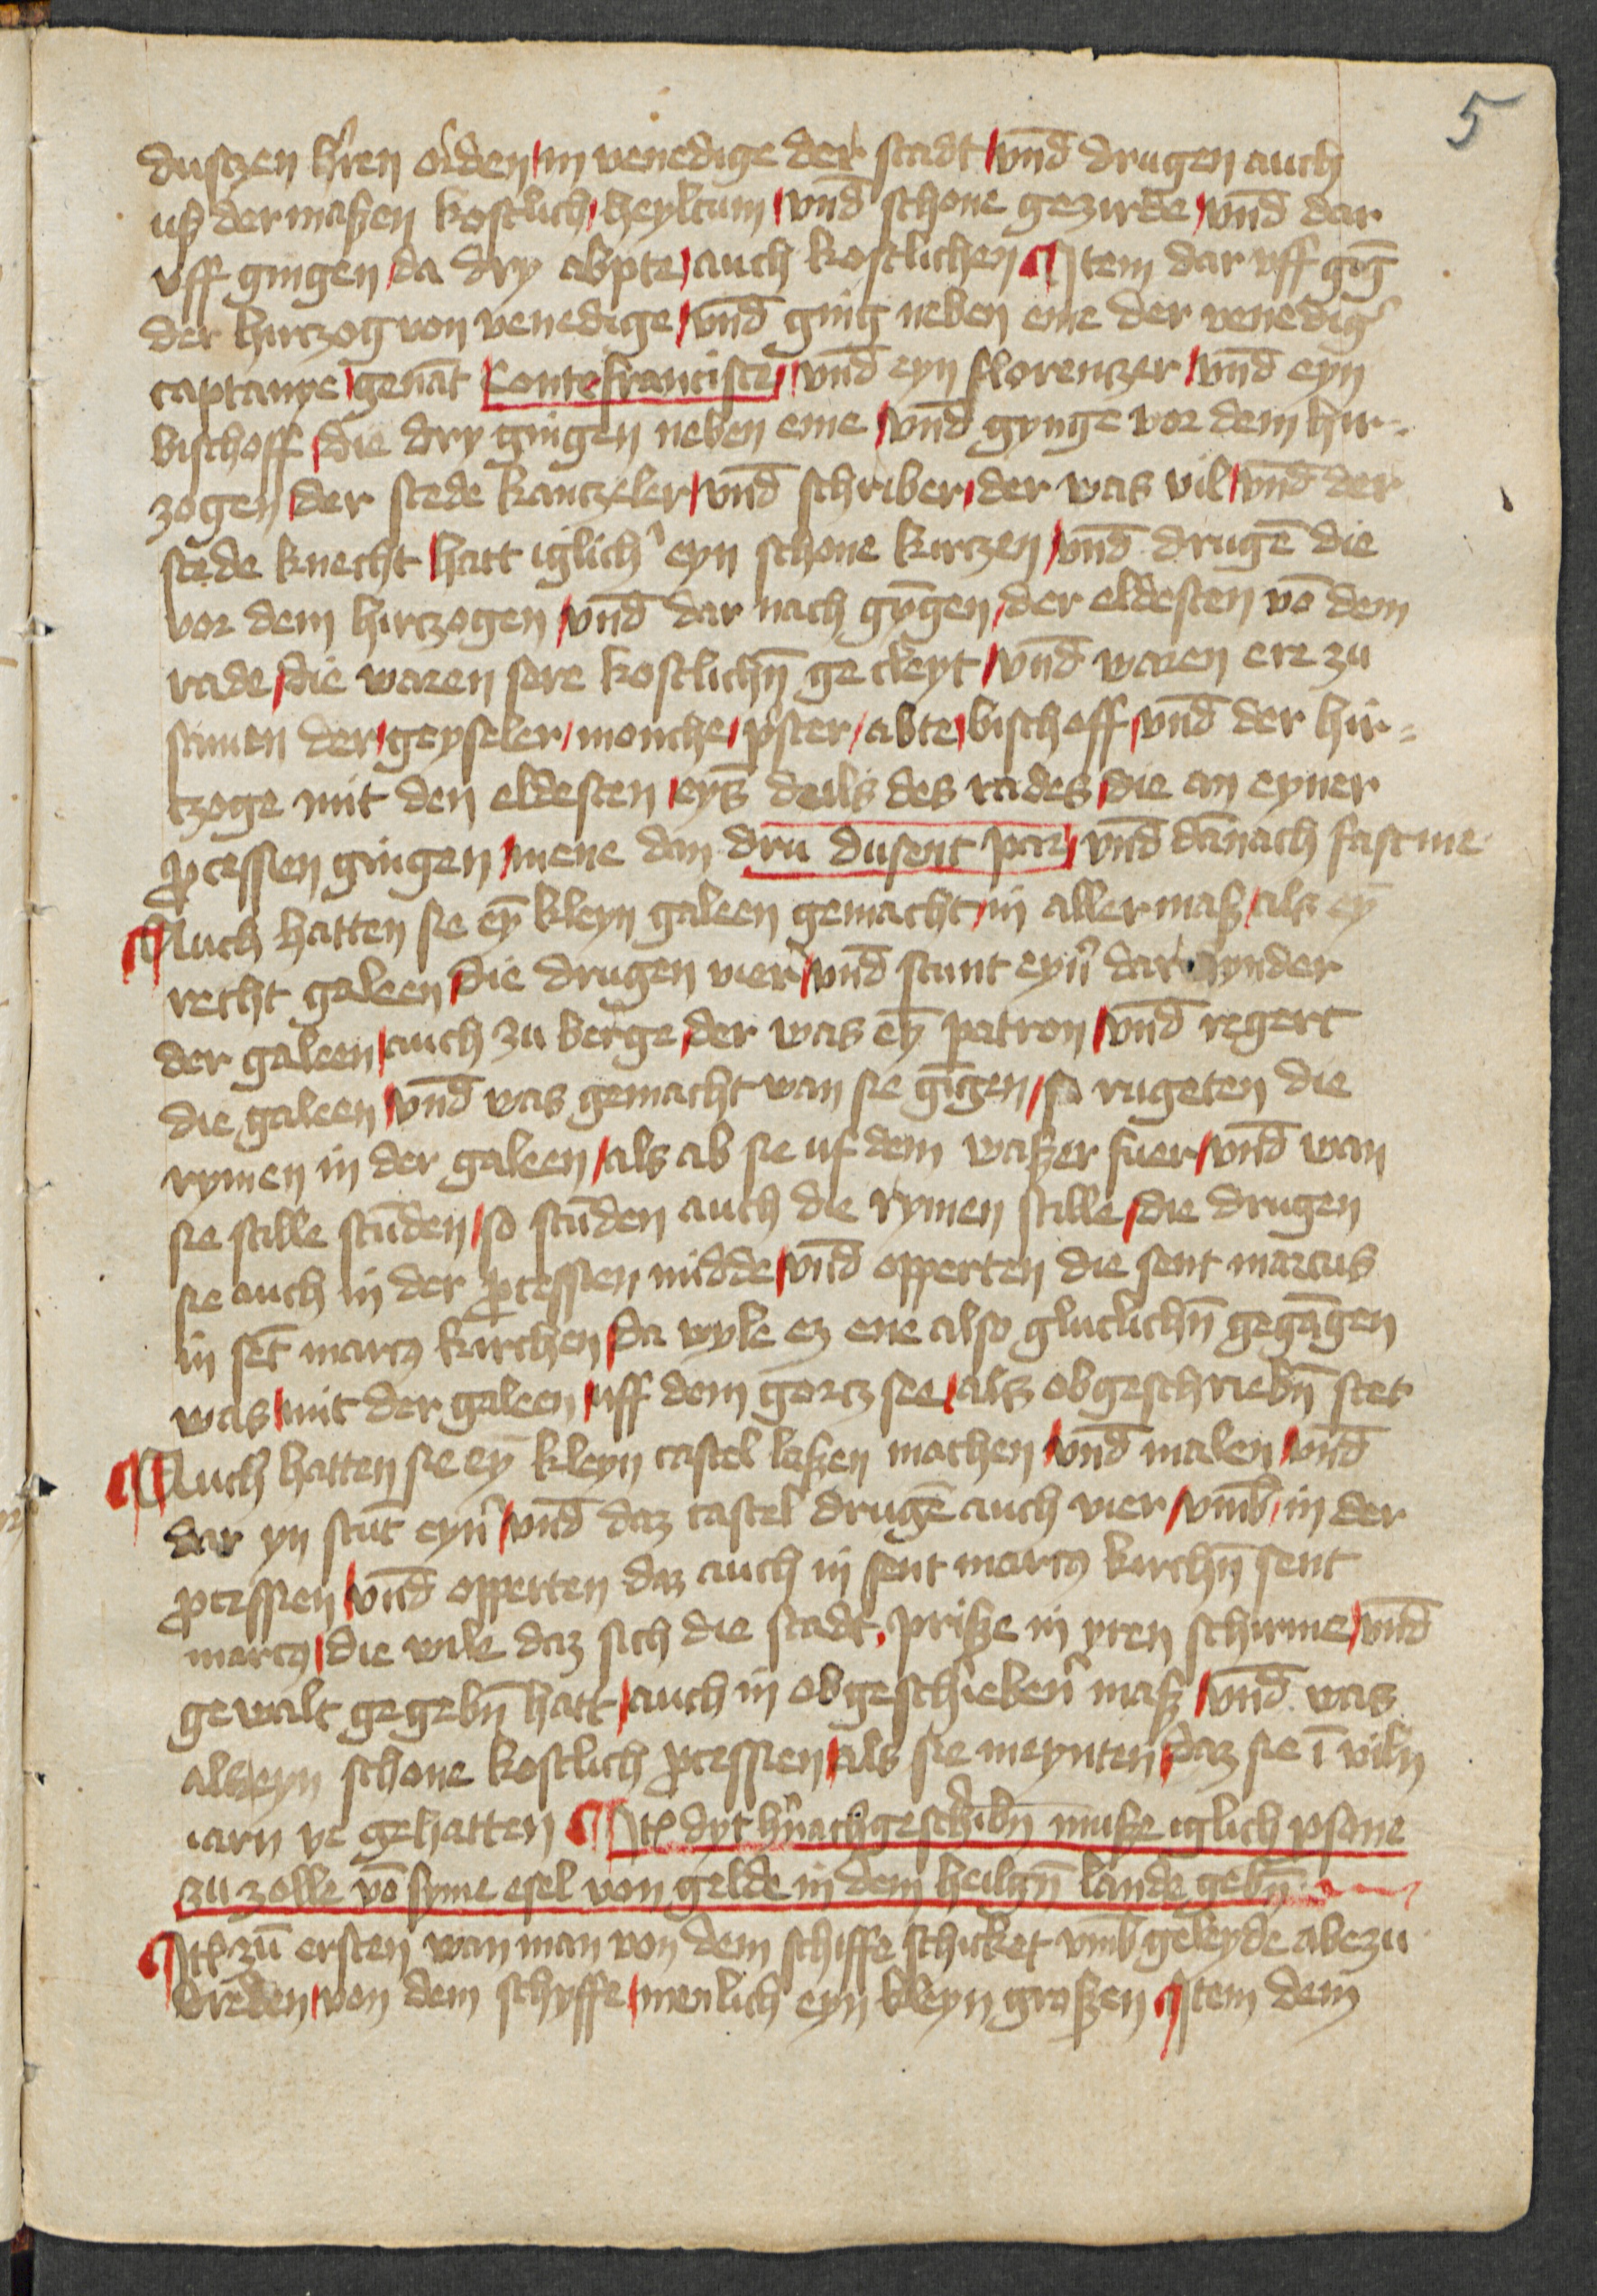 5
dusczen hren orden / in venedige der stadt / vnd drugen auch
uß dermaßen kostlich / heyltum / vnd schone gezirde / vnd dar
vff gingen / da dry abpte / auch kostlichen ¶ Item dar vff gīg
der hirczog von venedige / vnd ging neben eme der venedig'
captanye / genāt Contefrancisce / vnd eyn florenczer / vnd eyn
bischoff / die dry gingen neben eme / vnd gynge vor dem hir-
zogen / der stede kanczeler / vnd schriber / der was vil / vnd der
stede knecht / hatt iglich' eyn schone kirczen / vnd drugē die
vor dem hirczogen / vnd dar nach gȳgen / der eldesten vō dem
rade / die waren sere kostlichn̄ gecleyt / vnd waren ere zu
samen der / geyseler / monche / p'ster / abte / bischoff / vnd der hir=
czoge mit den eldesten / eyns deils des rades / die an eyner
ꝓcessien gingen / mene dan dru dusent par / vnd dānach fast me
¶ Auch hatten sie eȳ kleyn galeen gemacht / in aller maß / als eȳ
recht galeen / die drugen vier / vnd stunt eyn' dar hynder
der galeen / auch zu berge / der was eȳ patron / vnd regert
die galeen / vnd was gemacht wan sie gīgen / so rugeten die
rymen in der galeen / als ab sie uf dem waßer fuer / vnd wan
sie stille stūden / so stūden auch die rymen stille / die drugen
sie auch in der ꝓcessien midde / vnd opperten die sent marcus
in sēt marcꝰ kirchen / da wyle eȝ ene also gluclichn̄ gegāgen
was / mit der galeen / uff dem gorcz see / als obgeschriebn̄ stet
¶ Auch hatten sie eȳ kleyn castel laßen machen / vnd malen / vnd
dar yn stūt eyn' / vnd daz castel drugē auch vier / vmb / in der
ꝓcessien / vnd opperten daz auch in sent marcꝰ kirchn̄ sent
marcꝰ / die wile daz sich die stadt / prißze in yren schirme / vnd
gewalt gegebn̄ hatt / auch in obgeschrieben' maß / vnd was
als eyn schone kostlich ꝓcessien / als sie meynten / daz sie ī viln̄
iarn ye gehatten ¶ Itē dyt h'nachgeschribn̄ muße iglich ꝑsone
zu zolle vō syme esel von gelde in dem heilgn̄ lande gebn̄
¶ Itē zū ersten wan man von dem schiffe schicket vmb geleyde abezu
dreden / von dem schyffe / menlich eyn kleyn großen ¶ Item dem